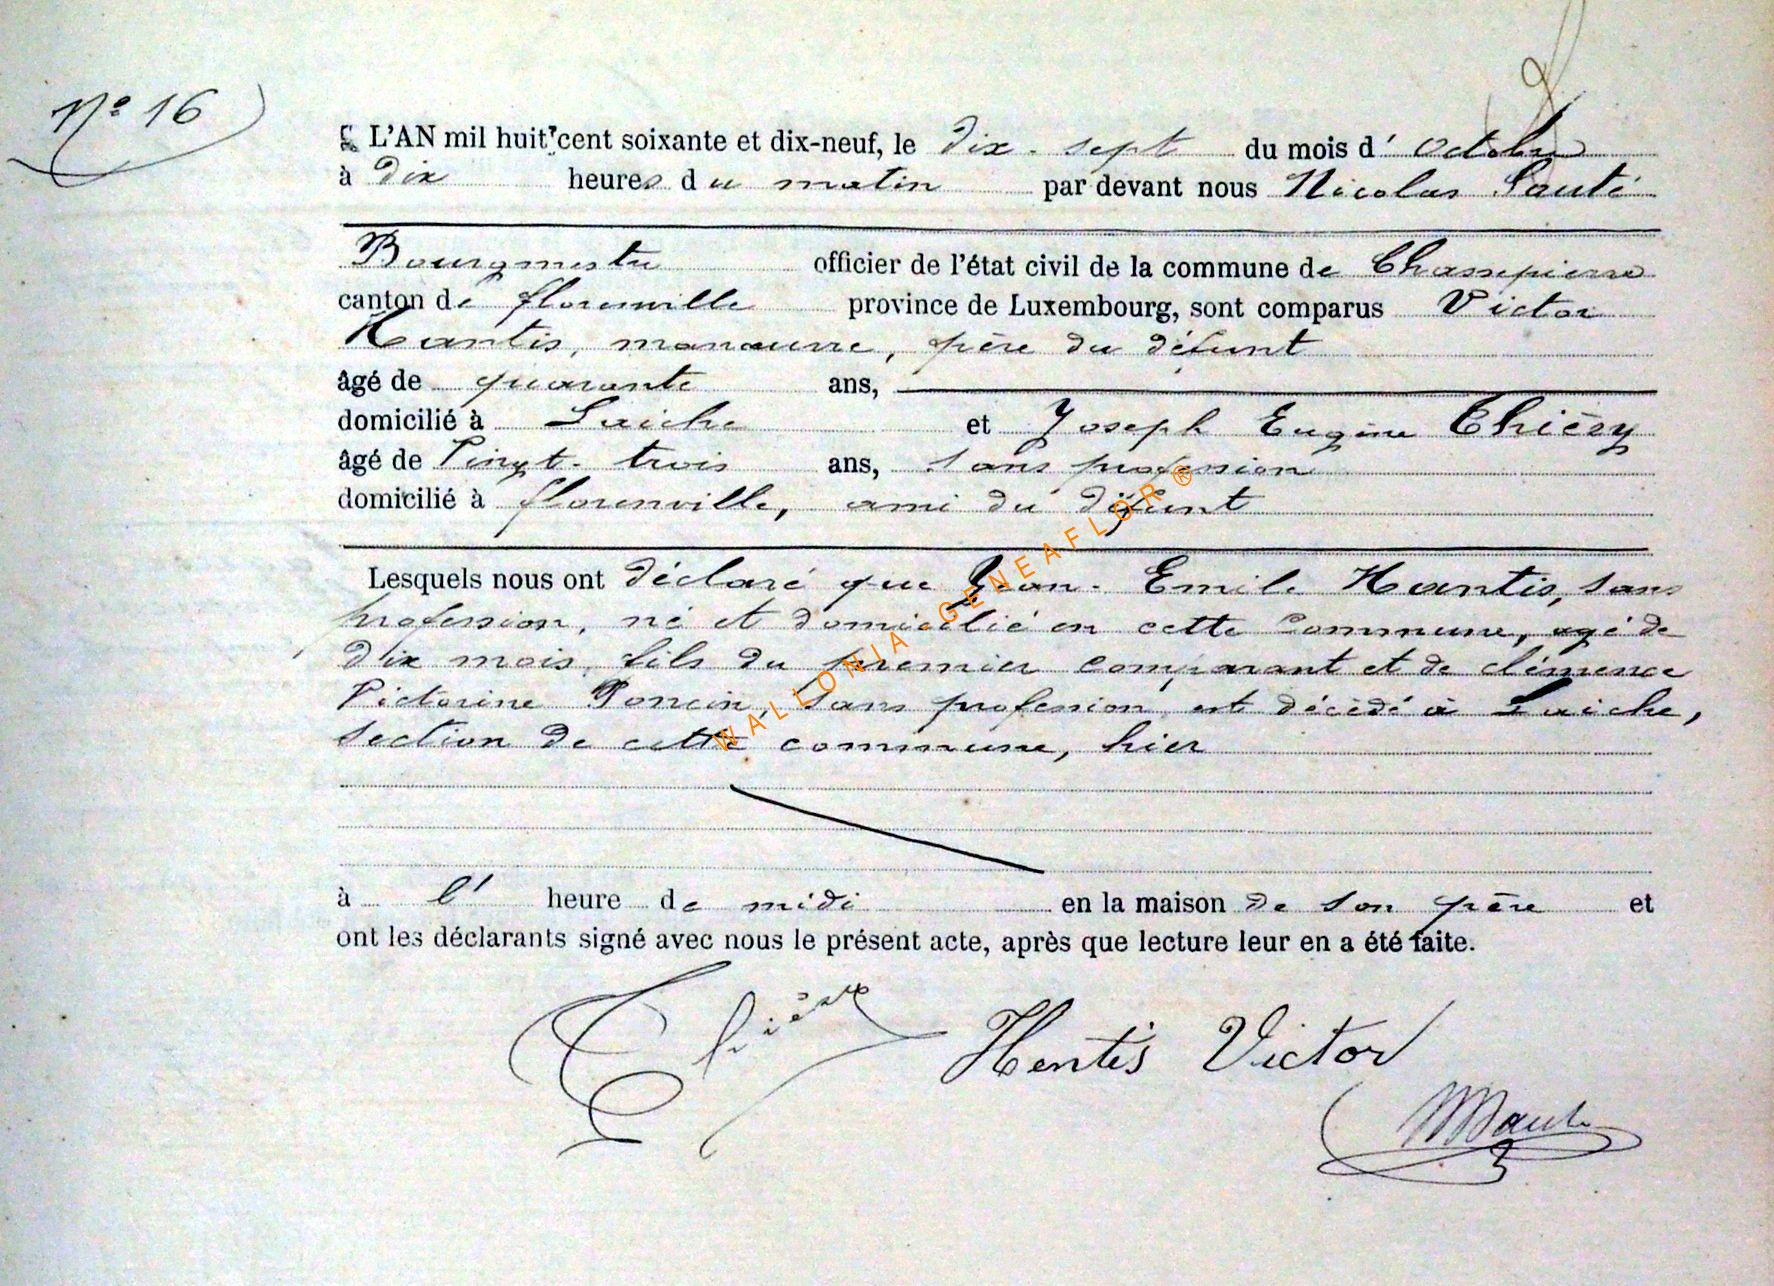 N° 16
L'AN mil huit cent soixante et dix-neuf, le dix-sept du mois d'octobre
à dix heures du matin par devant nous Nicolas Sauté
Bourgmestre officier de l'état civil de la commune de Chassepierre
canton de florenville province de Luxembourg, sont comparus Victor
Hantis, manœuvre, père du défunt
âgé de quarante ans,
domicilié à Laiche et Joseph Eugène Thiéry
âgé de Vingt-trois ans, sans profession
domicilié à florenville, ami du défunt
Lesquels nous ont déclaré que Jean-Emile Hantis, sans
profession, né et domicilié en cette Commune, agé de
dix mois, fils du premier comparant et de clémence
Victorine Poncin, sans profession est décédé à Laiche,
section de cette commune, hier
à l' heure de midi en la maison de son père et
ont les déclarants signé avec nous le présent acte, après que lecture leur en a été faite.
Thiéry Hentis Victor
NSauté
WALLONIA GENEAFLOR ®